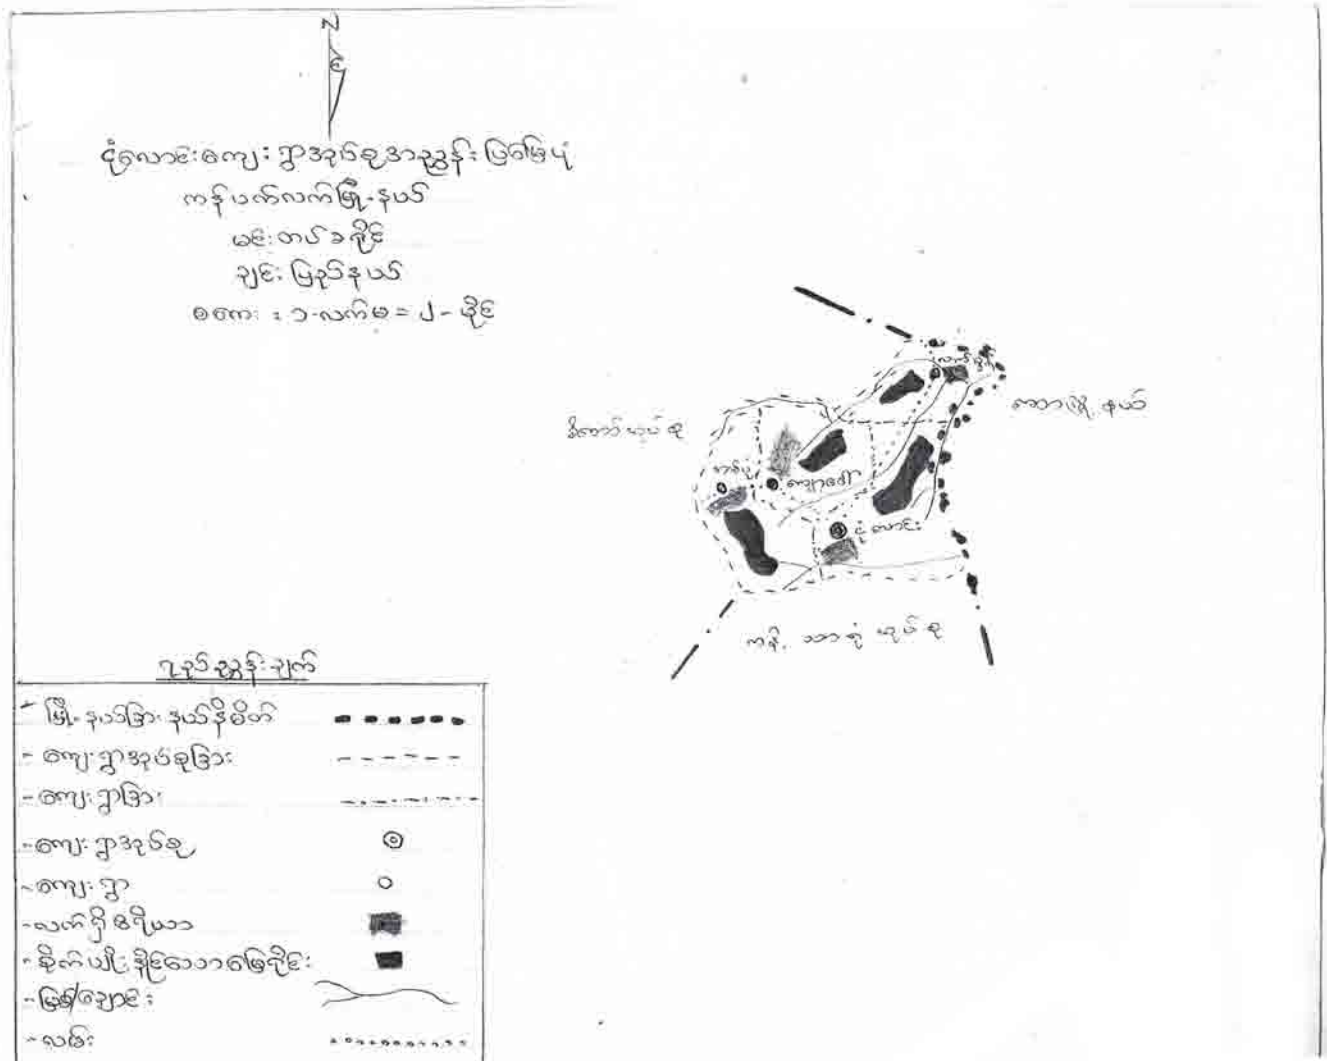 N
ငုံလောင်းကျေးရွာအုပ်စုအညွှန်းပြမြေပုံ
ကန်ပက်လက်မြို့နယ်
မင်းတပ်ခရိုင်
ချင်းပြည်နယ်
စကေး = ၁-လက်မ = ၂-မိုင်
မြို့နယ်
အုပ်စု
ကျာဒေါ်
ငုံလောင်း
အုပ်စု
ရည်ညွှန်းချက်
- မြို့နယ်ခြားနယ်နိမိတ်
- ကျေးရွာအုပ်စုခြား
- ကျေးရွာခြား
- ကျေးရွာအုပ်စု
- ကျေးရွာ
- လက်ရှိဧရိယာ
- စိုက်ပျိုးနိုင်သောမြေရိုင်း
- မြစ်/ချောင်း
- လမ်း